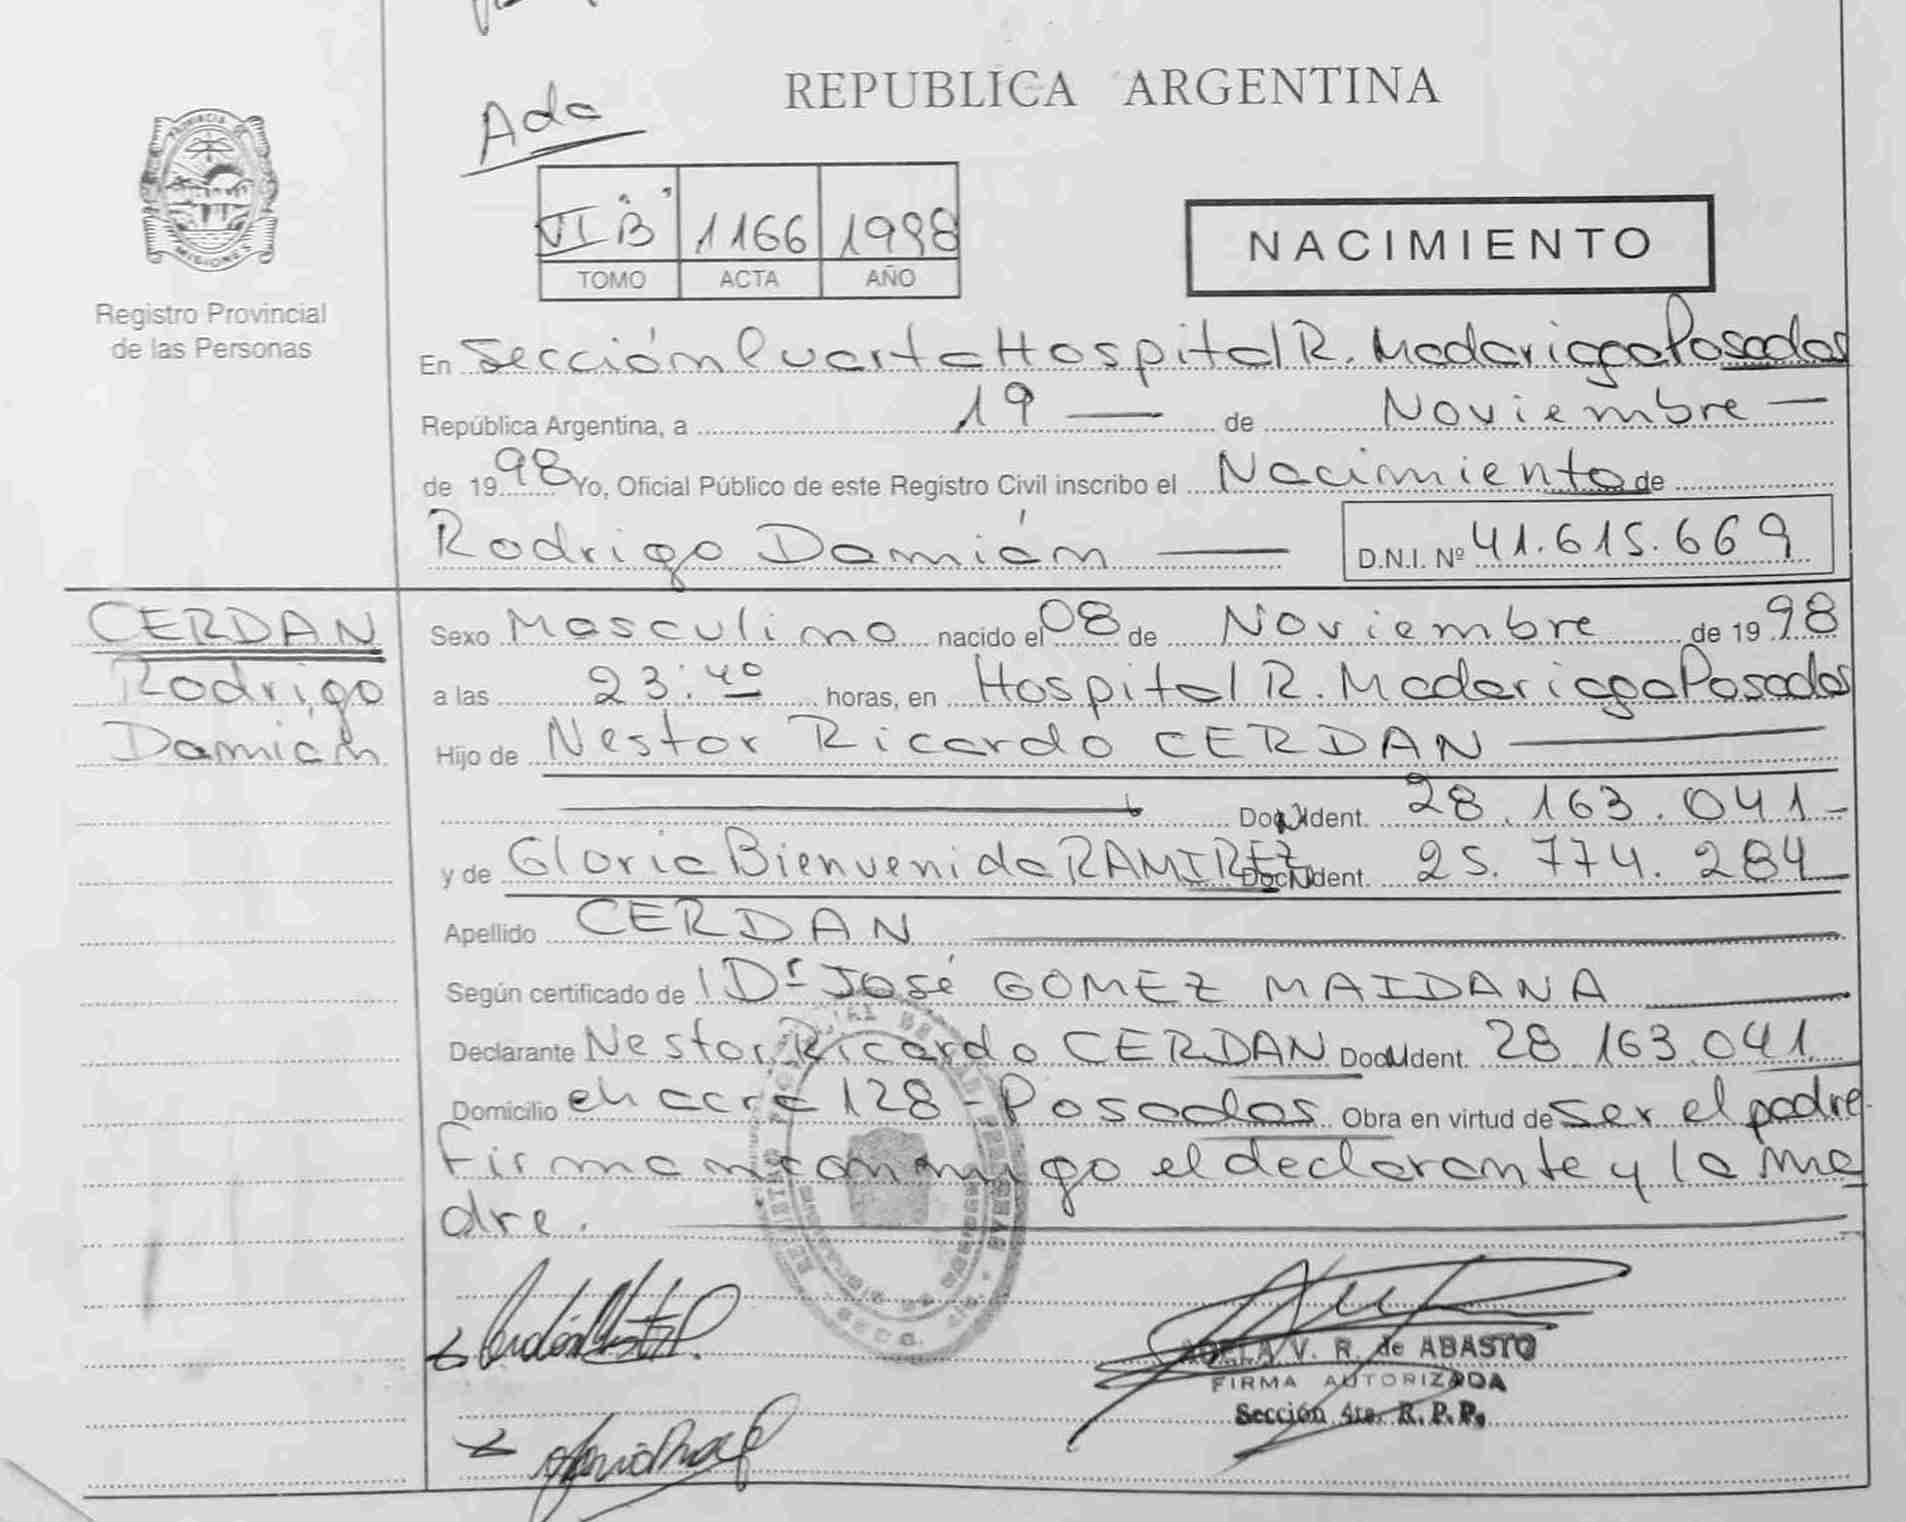 REPUBLICA ARGENTINA
Ada
PROVINCIA DE
MISIONES
VI "B" 1166 1998
TOMO ACTA AÑO
NACIMIENTO
Registro Provincial
de las Personas
En Sección Cuarta Hospital R. Madariaga Posadas
República Argentina, a 19 de Noviembre
de 1998 Yo, Oficial Público de este Registro Civil inscribo el Nacimiento de
Rodrigo Damián D.N.I. Nº 41.615.669
CERDAN
Rodrigo
Damián
Sexo Masculino nacido el 08 de Noviembre de 1998
a las 23:40 horas, en Hospital R. Madariaga Posadas
Hijo de Nestor Ricardo CERDAN
Doc. Ident. 28.163.041
y de Gloria Bienvenida RAMIREZ Doc. Ident. 25.774.284
Apellido CERDAN
Según certificado de Dr José GOMEZ MAIDANA
Declarante Nestor Ricardo CERDAN Doc. Ident. 28.163.041
Domicilio chacra 128 - Posadas Obra en virtud de ser el padre
Firman conmigo el declarante y la ma
dre.
V. R. de ABASTO
FIRMA AUTORIZADA
Sección 4ta. R. P. P.